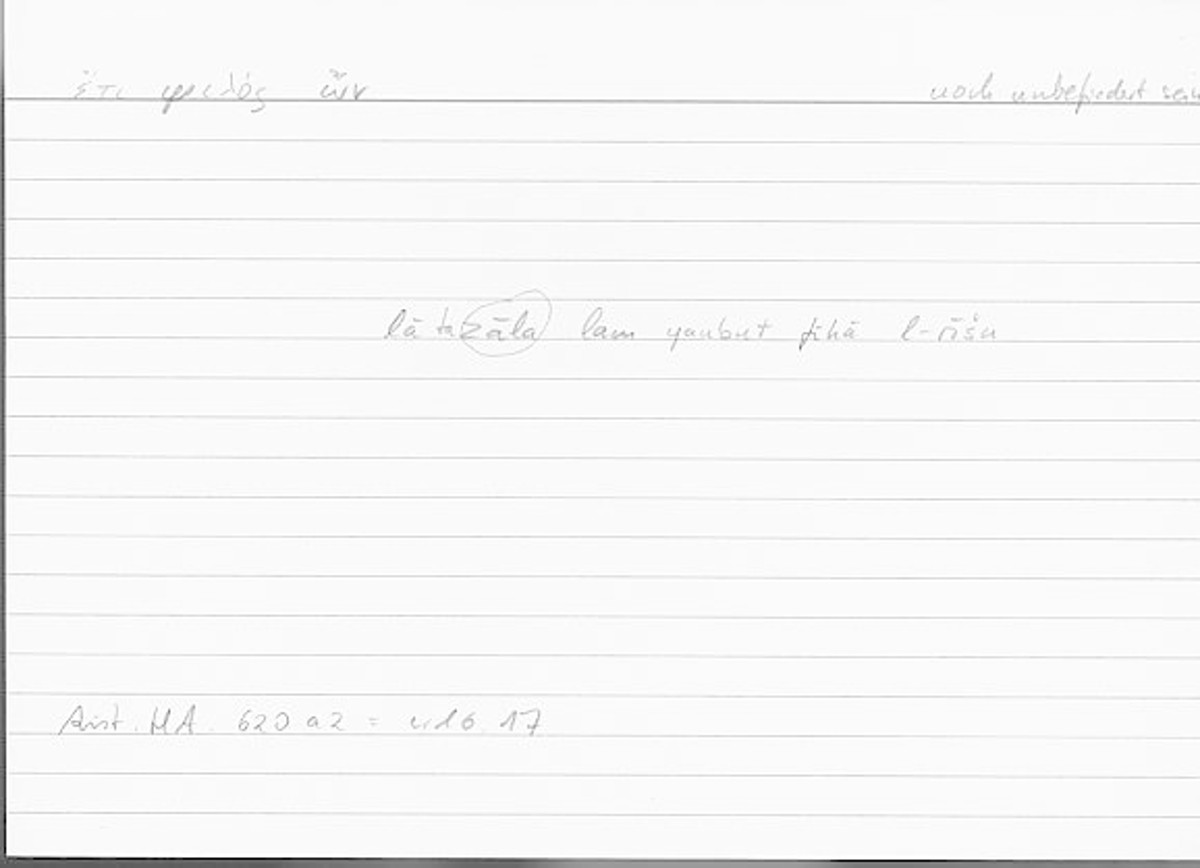 ἔτι ψιλός ὤν noch unbefiedert sein
lā tazāla lam yanbut fīhā l-rīšu
Arist. HA. 620 a2 = 16 17